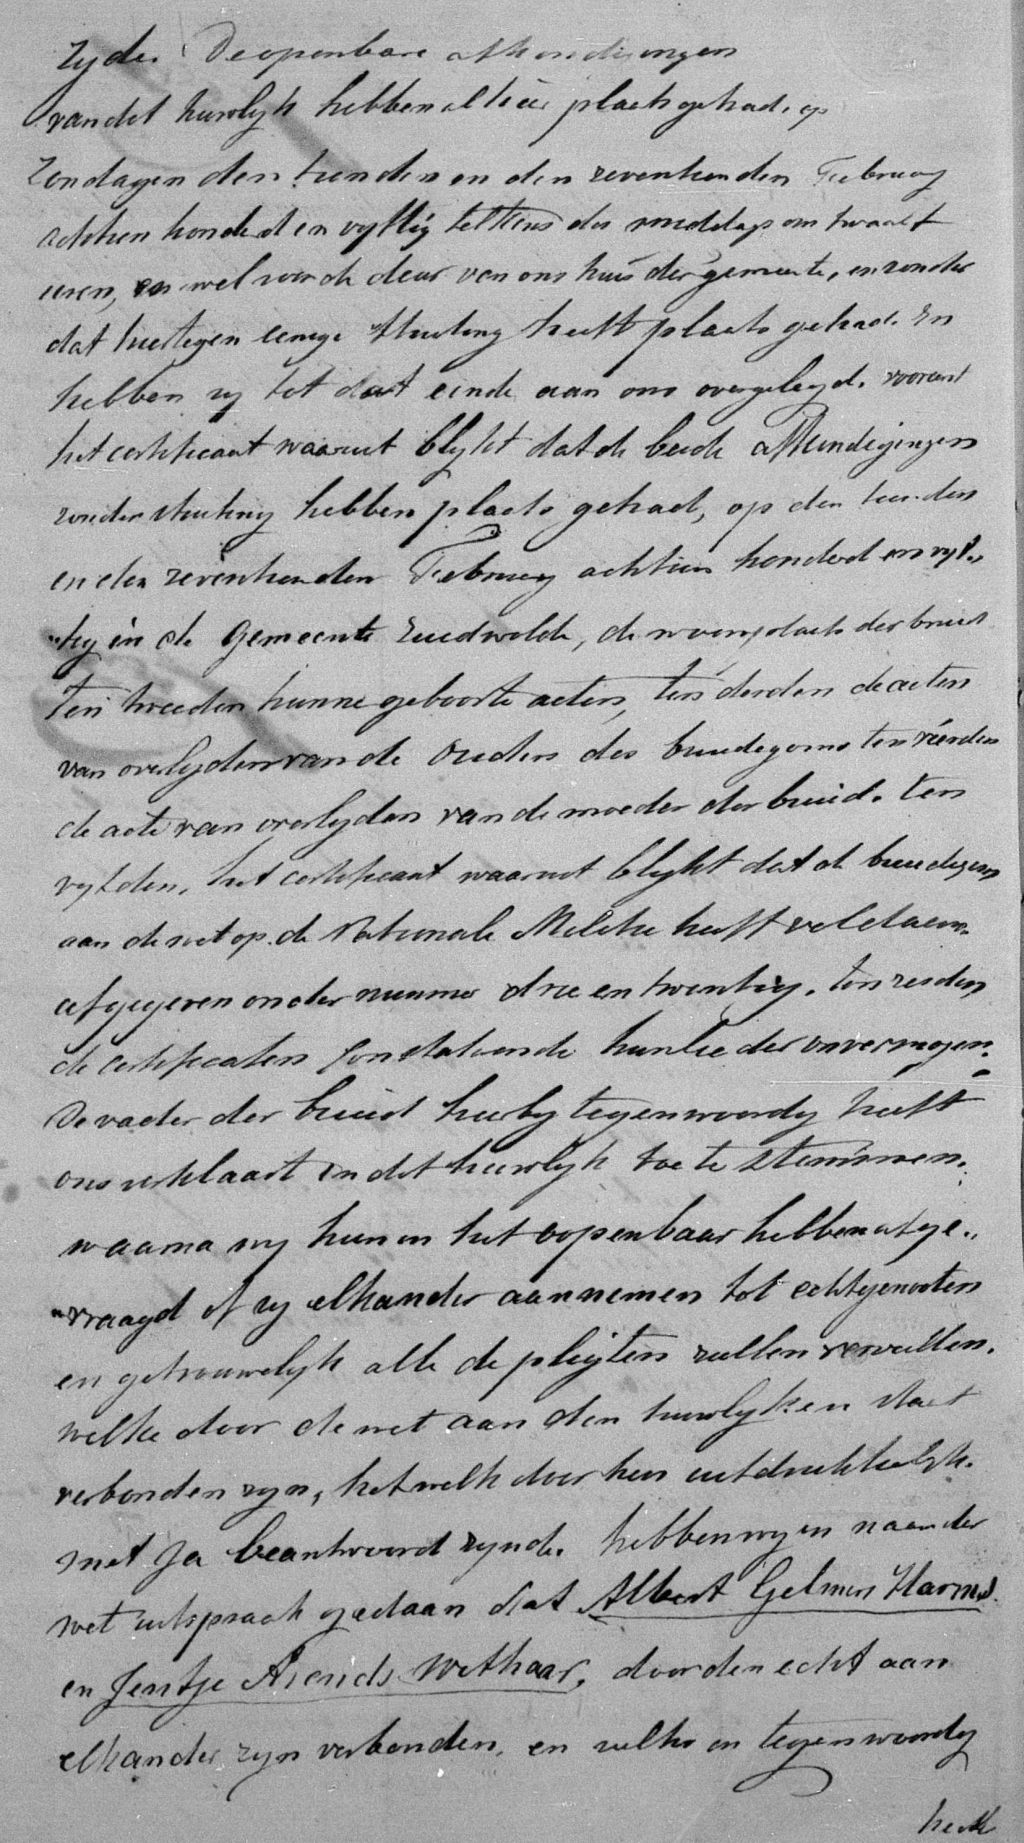 zyde. De openbare afkondigingen
van dit huwlyk hebben alhier plaats gehad, op
Zondagen den tienden en den zeventienden Februarij
achttien honderd en vyftig telkens des middags om twaalf
uren, en wel voor de deur van ons huis der gemeente, en zonder
dat hiertegen eenige stuiting heeft plaats gehad. En
hebben zy tot dat einde aan ons overgelegd. vooreerst
het certificaat waaruit blykt dat de beide afkundigingen
zonder stuiting hebben plaats gehad, op den tienden
en den zeventienden Februarij achttien honderd en vyf„
„tig in de Gemeente Zuidwolde, de woonplaats der bruid
ten tweeden hunne geboorte acten, ten derden de acten
van overlyden van de Ouders des bruidegoms ten vierden
de acte van overlyden van de moeder der bruid. ten
vyfden, het certificaat waaruit blykt dat de bruidegom
aan de wet op de Nationale Militie heeft voldaan.
afgegeven onder nummer drie en twintig. ten zesden,
de certificaten constateerende hunlieder onvermogen.
De vader der bruid hierby tegenwoordig heeft
ons verklaart in dit huwlyk toe te stemmen.
waarna wy hun in het oopenbaar hebben afge„
„vraagd of zy elkander aannemen tot echtgenooten
en getrouwelyk alle de pligten zullen vervullen.
welke door de wet aan den huwlyken staat
verbonden zyn, hetwelk door hen uitdrukkelyk.
met Ja beantwoord zynde. hebben wy in naam der
wet uitspraak gedaan dat Albert Gelmers Harms.
en Jentje Arends Wethaar, door den echt aan
elkander zyn verbonden, en zulks in tegenwoordig
heid